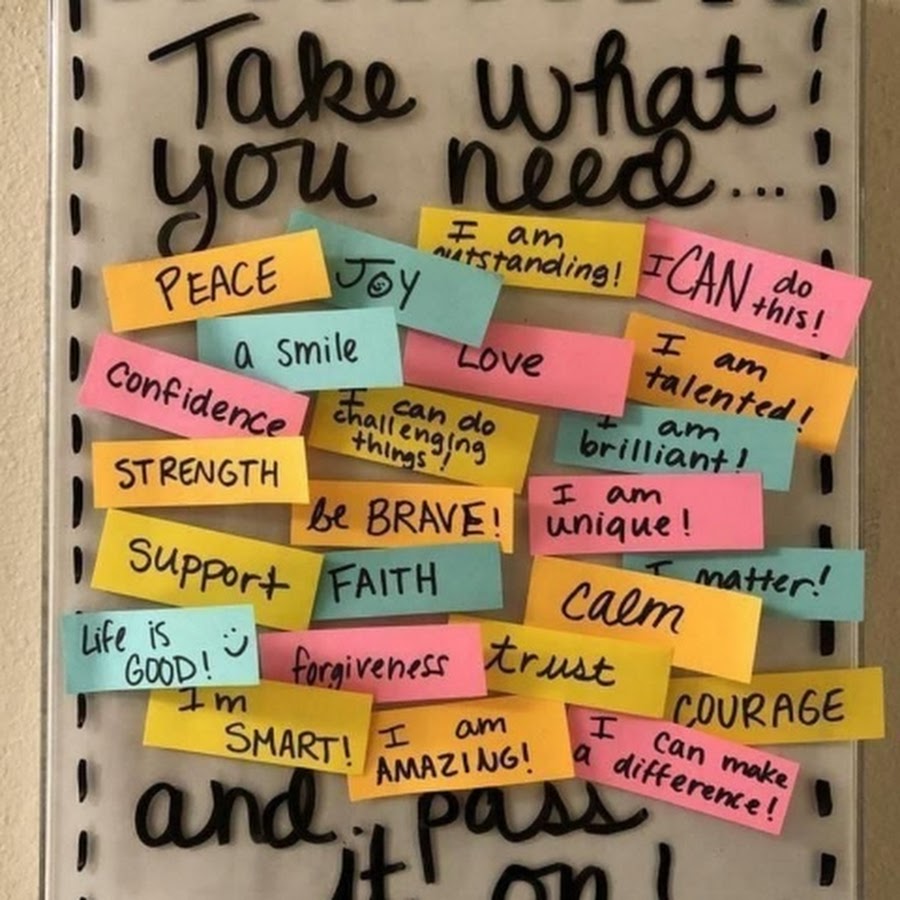 Take what
you need...
PEACE
JOY
I am
outstanding!
I CAN do
this!
a smile
Love
I am
talented!
confidence
I can do
challenging
things!
I am
brilliant!
STRENGTH
be BRAVE!
I am
unique!
Support
FAITH
I matter!
calm
Life is
GOOD!
forgiveness
trust
COURAGE
I'm
SMART!
I am
AMAZING!
I can make
a difference!
and pass
it on!